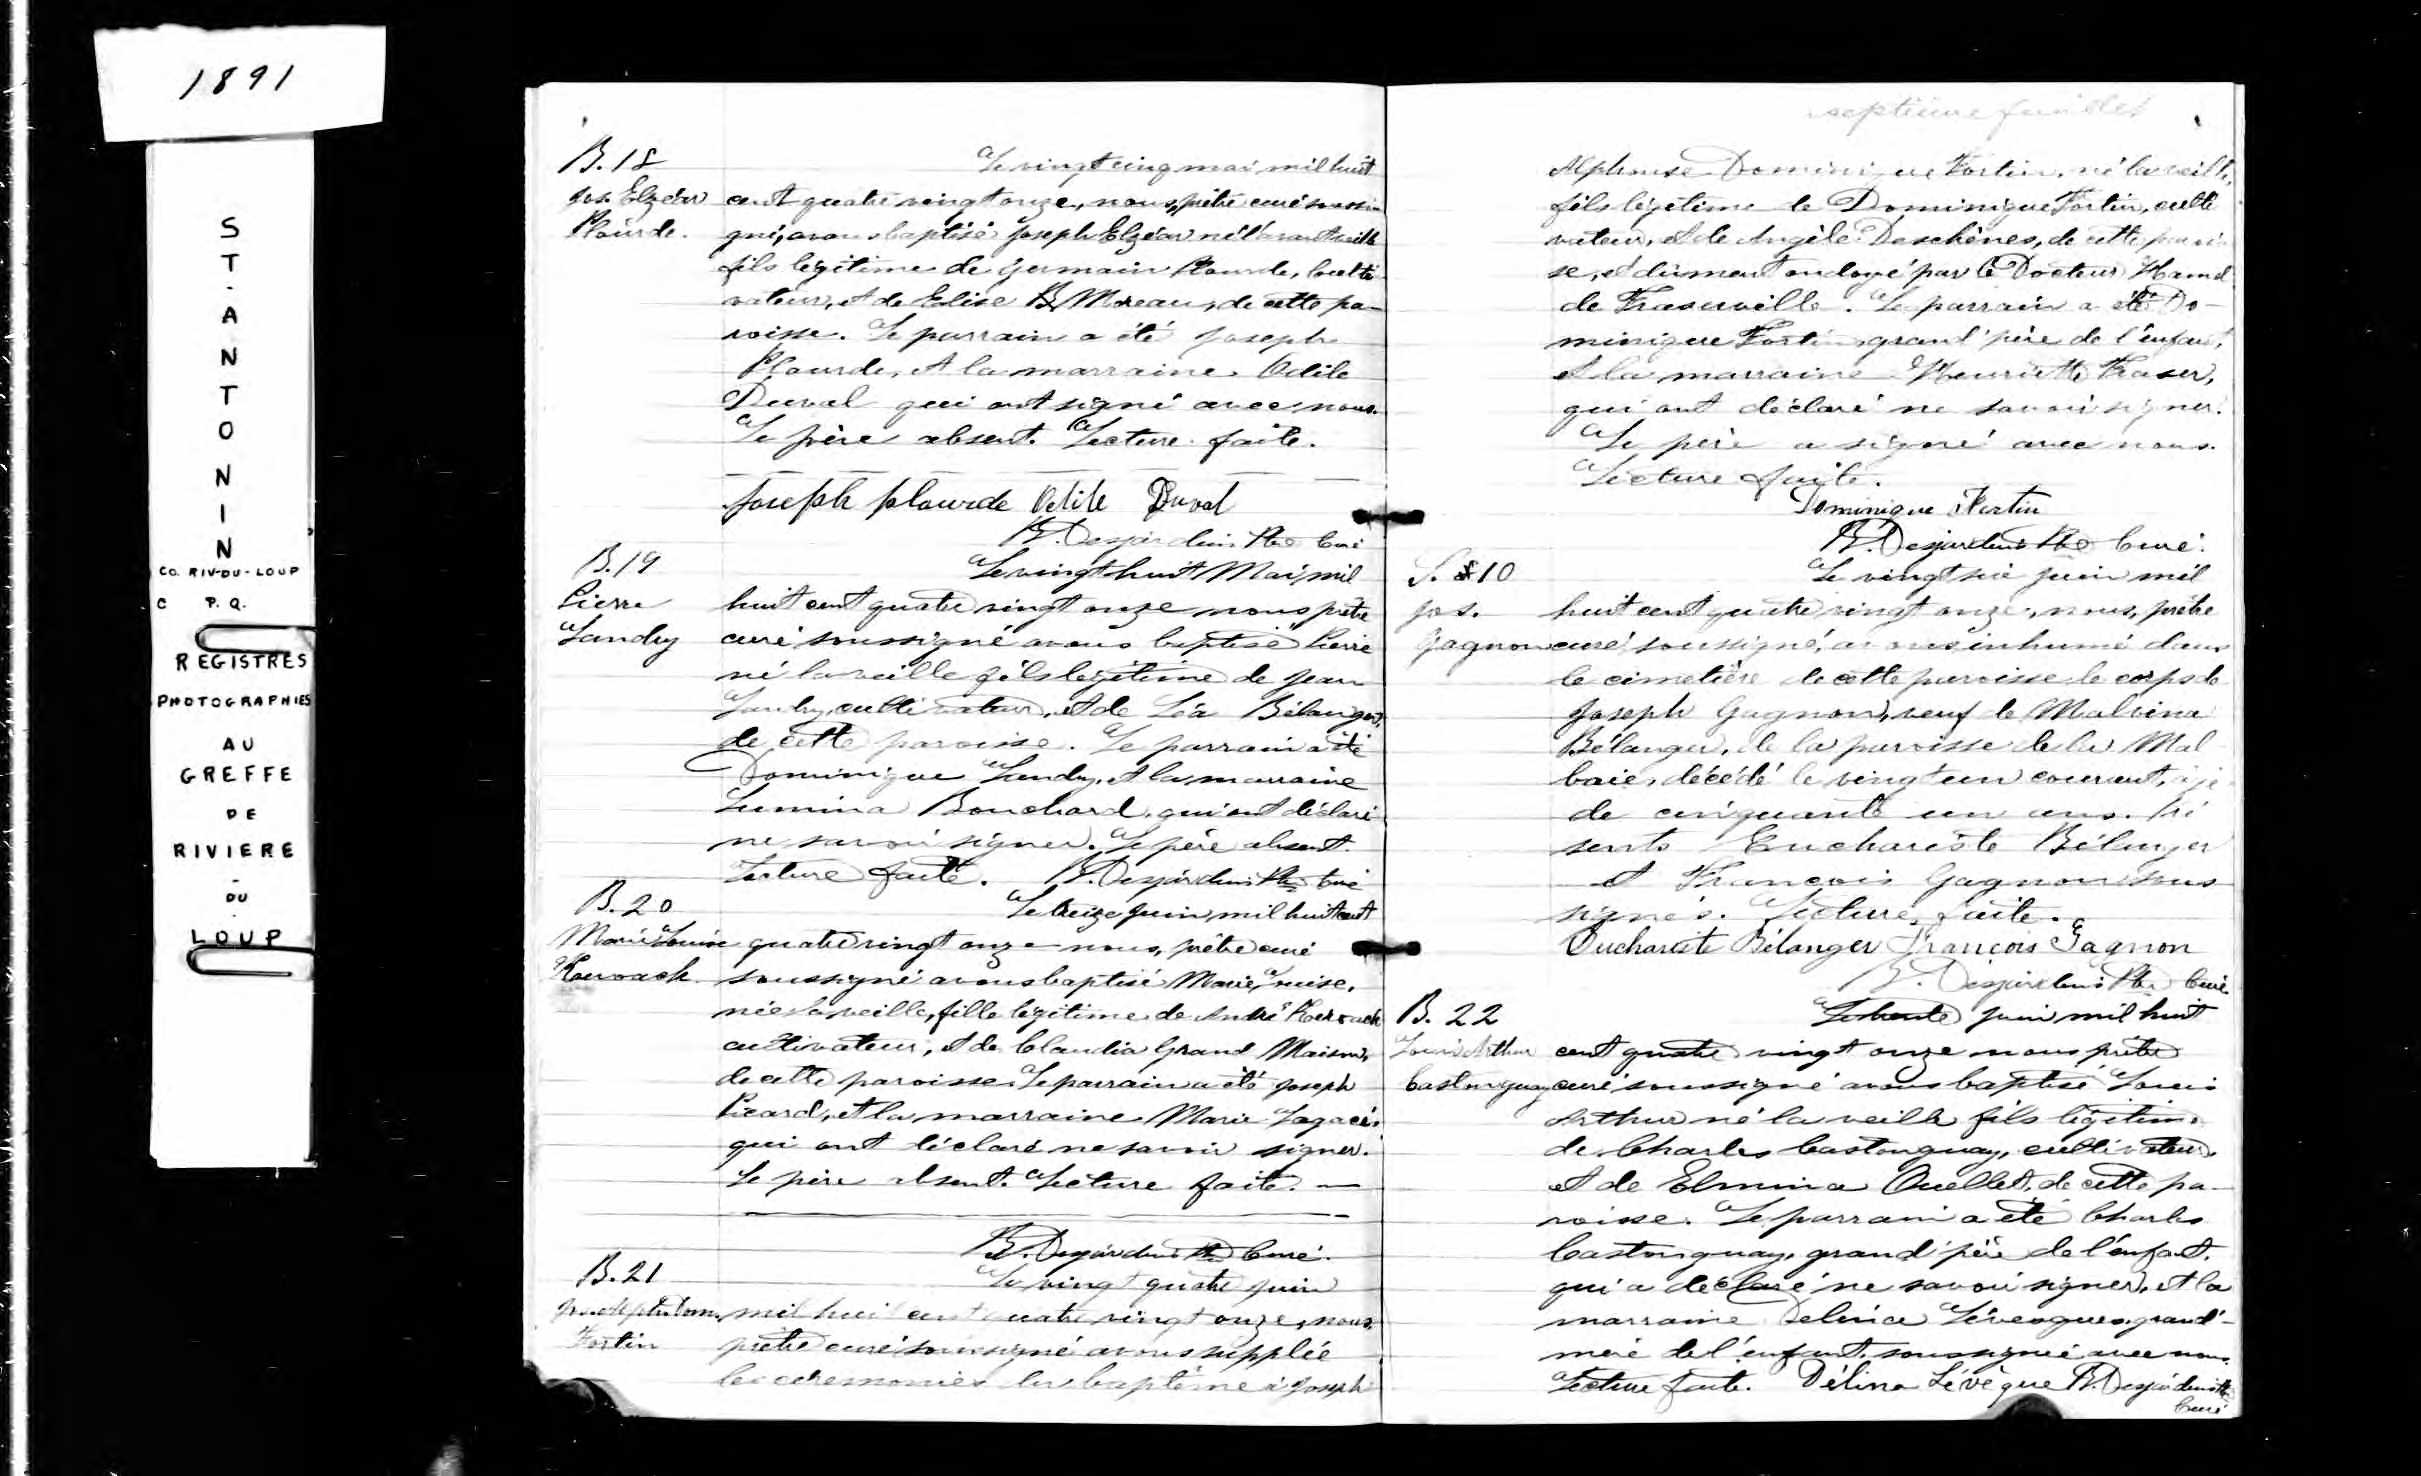 1891
S
T.
A
N
T
O
N
I
N
CO. RIV-DU-LOUP
C P.Q.
REGISTRES
PHOTOGRAPHIES
AU
GREFFE
DE
RIVIERE
-
DU
LOUP
B.18
Jos. Elzéar
Plourde.
Le vingt cinq mai mil huit
cent quatre vingt onze, nous, prêtre curé soussi-
gné, avons baptisé Joseph Elzéar né l'avant veille
fils légitime de Germain Plourde, culti-
vateur, et de Elise Moreau, de cette pa-
roisse. Le parrain a été Joseph
Plourde, et la marraine Odile
Duval qui ont signé avec nous.
Le père absent. Lecture faite.
Joseph plourde Odile Duval
Desjardins Ptre Curé
B.19
Pierre
Landry
Le vingt huit Mai, mil
huit cent quatre vingt onze nous prêtre
curé soussigné avons baptisé Pierre
né la veille fils légitime de Jean
Landry, cultivateur, et de Léa Bélanger,
de cette paroisse. Le parrain a été
Dominique Landry, et la marraine
Lumina Bouchard, qui ont déclaré
ne savoir signer. Le père absent.
Lecture faite. Desjardins Ptre Curé
B.20
Marie Louise
Kerouack
Le treize Juin, mil huit cent
quatre vingt onze nous, prêtre curé
soussigné avons baptisé Marie Louise,
née la veille, fille légitime de André Kerouack
cultivateur, et de Claudia Grand Maison,
de cette paroisse. Le parrain a été Joseph
Picard, et la marraine Marie Lagacé,
qui ont déclaré ne savoir signer.
Le père absent. Lecture faite. —
Desjardins Ptre Curé.
B.21
Fortin
Le vingt quatre juin
mil huit cent quatre vingt onze, nous,
prêtre curé soussigné avons supplée
les cérémonies du baptême à Joseph
septième feuillet
Alphonse Dominique Fortin, né la veille,
fils légitime de Dominique Fortin, culti
vateur, et de Angèle Deschênes, de cette parois
se, et dûment ondoyé par le Docteur
de Fraserville. Le parrain a été Do-
minique Fortin, grand'père de l'enfant,
et la marraine Henriette Fraser,
qui ont déclaré ne savoir signer.
Le père a signé avec nous.
Lecture faite.
Dominique Fortin
Desjardins Ptre Curé.
S. 10
Jos.
Gagnon
Le vingt six juin mil
huit cent quatre vingt onze, nous, prêtre
curé soussigné, avons inhumé dans
le cimetière de cette paroisse le corps de
Joseph Gagnon, veuf de Malvina
Bélanger, de la paroisse de la Mal
baie, décédé le vingt un courant, âgé
de cinquante un ans. Pré
sents Euchariste Bélanger
et François Gagnon sous
signés. Lecture faite.
Euchariste Bélanger François Gagnon
Desjardins Ptre Curé
B. 22
Louis Arthur
Castonguay
Le trente juin mil huit
cent quatre vingt onze nous prêtre
curé soussigné avons baptisé Louis
Arthur né la veille fils légitime
de Charles Castonguay, cultivateur,
et de Elmina Ouellet, de cette pa-
roisse. Le parrain a été Charles
Castonguay, grand'père de l'enfant,
qui a déclaré ne savoir signer, et la
marraine Delina Lévesque, grand'-
mère de l'enfant, soussignée avec nous.
Lecture faite. Délina Lévêque Desjardins Ptre
Curé